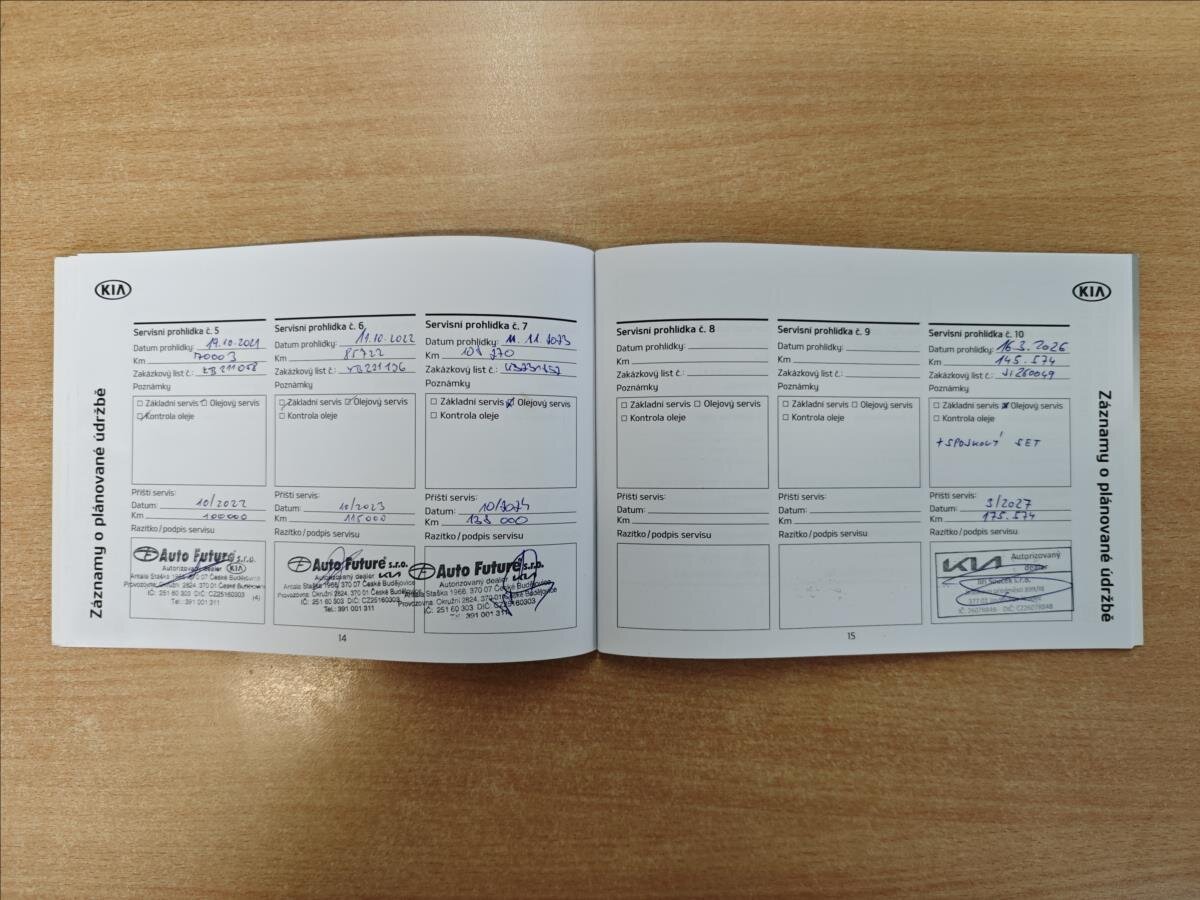 KIA
Záznamy o plánované údržbě
Servisní prohlídka č. 5
Datum prohlídky: 19.10.2021
Km 70003
Zakázkový list č.:
Poznámky
Základní servis Olejový servis
Kontrola oleje
Příští servis:
Datum: 10/2022
Km 100000
Razítko/podpis servisu
Auto Future s.r.o.
Autorizovaný dealer KIA
Antala Staška 1968, 370 07 České Budějovice
Provozovna: Okružní 2824, 370 01 České Budějovice
IČ: 251 60 303 DIČ: CZ25160303
Tel.: 391 001 311 (4)
Servisní prohlídka č. 6
Datum prohlídky: 11.10.2022
Km 85722
Zakázkový list č.:
Poznámky
Základní servis Olejový servis
Kontrola oleje
Příští servis:
Datum: 10/2023
Km 115000
Razítko/podpis servisu
Auto Future s.r.o.
Autorizovaný dealer KIA
Antala Staška 1968, 370 07 České Budějovice
Provozovna: Okružní 2824, 370 01 České Budějovice
IČ: 251 60 303 DIČ: CZ25160303
Tel.: 391 001 311
Servisní prohlídka č. 7
Datum prohlídky: 11.11.2023
Km
Zakázkový list č.:
Poznámky
Základní servis Olejový servis
Kontrola oleje
Příští servis:
Datum: 10/2024
Km
Razítko/podpis servisu
Auto Future s.r.o.
Autorizovaný dealer KIA
Antala Staška 1968, 370 07 České Budějovice
Provozovna: Okružní 2824, 370 01 České Budějovice
IČ: 251 60 303 DIČ: CZ25160303
Tel.: 391 001 311
14
Servisní prohlídka č. 8
Datum prohlídky:
Km
Zakázkový list č.:
Poznámky
Základní servis Olejový servis
Kontrola oleje
Příští servis:
Datum:
Km
Razítko/podpis servisu
Servisní prohlídka č. 9
Datum prohlídky:
Km
Zakázkový list č.:
Poznámky
Základní servis Olejový servis
Kontrola oleje
Příští servis:
Datum:
Km
Razítko/podpis servisu
KIA
Servisní prohlídka č. 10
Datum prohlídky: 16.3.2026
Km 145.574
Zakázkový list č.:
Poznámky
Základní servis Olejový servis
Kontrola oleje
+ SPOJKOVÝ SET
Příští servis:
Datum: 3/2027
Km 175.574
Razítko/podpis servisu
KIA Autorizovaný
dealer
15
Záznamy o plánované údržbě